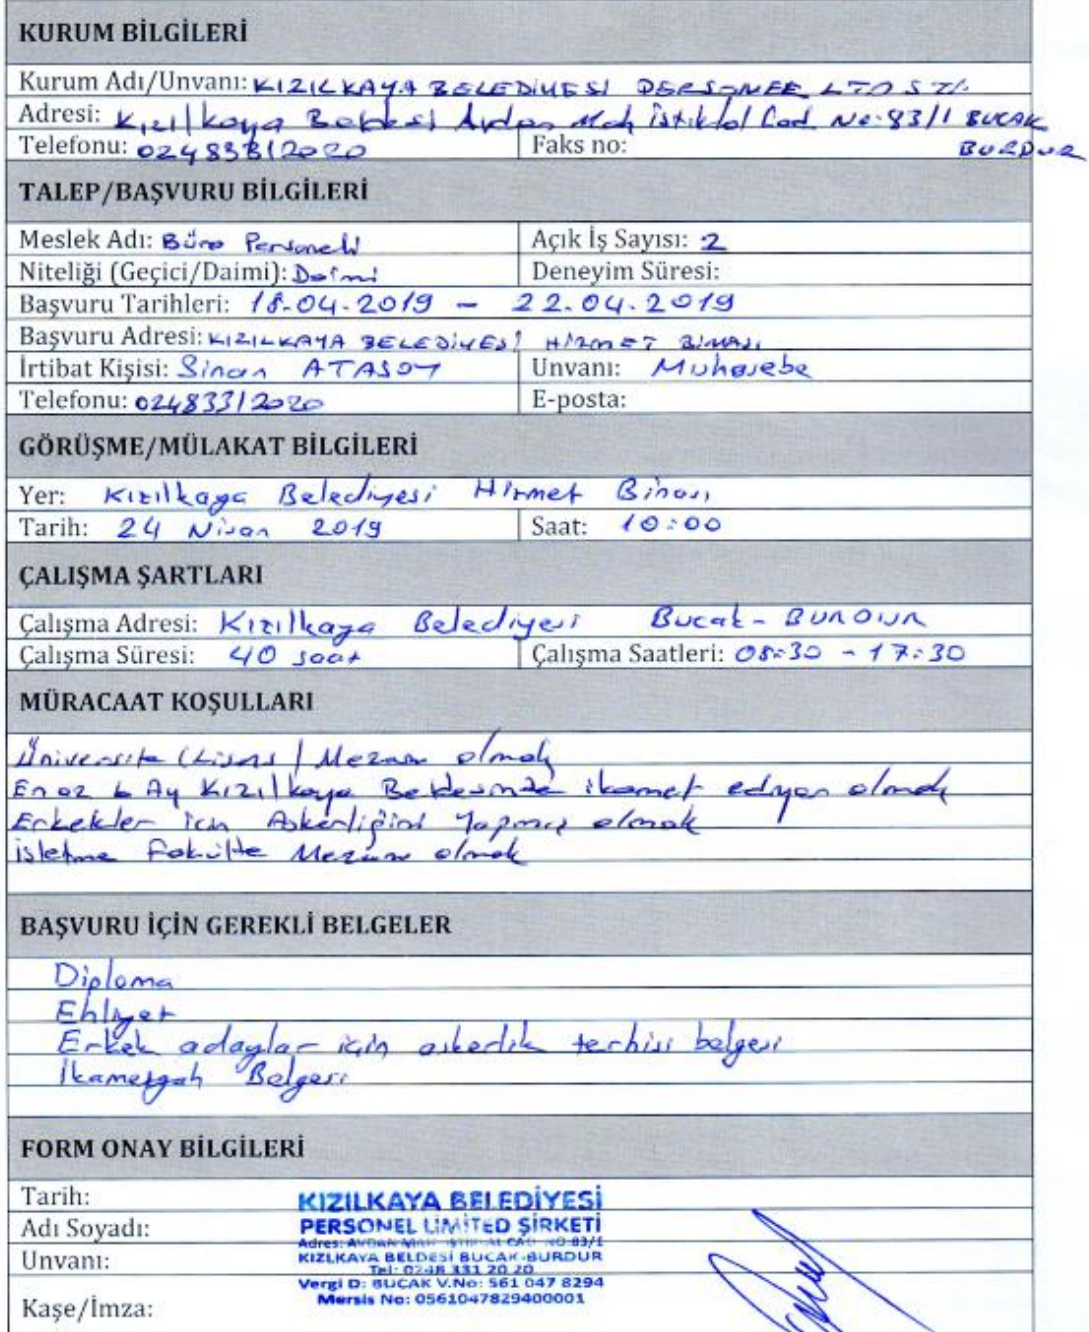 KURUM BİLGİLERİ
Kurum Adı/Unvanı: KIZILKAYA BELEDİYESİ PERSONEL LTD ŞTİ.
Adresi: Kızılkaya Beldesi Avdan Mah İstiklal Cad No:83/1 BUCAK
BURDUR
Telefonu: 02483312020 Faks no:
TALEP/BAŞVURU BİLGİLERİ
Meslek Adı: Büro Personeli Açık İş Sayısı: 2
Niteliği (Geçici/Daimi): Daimi Deneyim Süresi:
Başvuru Tarihleri: 18.04.2019 – 22.04.2019
Başvuru Adresi: KIZILKAYA BELEDİYESİ HİZMET BİNASI
İrtibat Kişisi: Sinan ATASOY Unvanı: Muhasebe
Telefonu: 02483312020 E-posta:
GÖRÜŞME/MÜLAKAT BİLGİLERİ
Yer: Kızılkaya Belediyesi Hizmet Binası
Tarih: 24 Nisan 2019 Saat: 10:00
ÇALIŞMA ŞARTLARI
Çalışma Adresi: Kızılkaya Belediyesi Bucak - BURDUR
Çalışma Süresi: 40 saat Çalışma Saatleri: 08:30 - 17:30
MÜRACAAT KOŞULLARI
Üniversite (Lisans) Mezunu olmak
En az 6 Ay Kızılkaya Beldesinde ikamet ediyor olmak
Erkekler için Askerliğini Yapmış olmak
İşletme Fakülte Mezunu olmak
BAŞVURU İÇİN GEREKLİ BELGELER
Diploma
Ehliyet
Erkek adaylar için askerlik terhisi belgesi
İkametgah Belgesi
FORM ONAY BİLGİLERİ
Tarih:
Adı Soyadı:
Unvanı:
Kaşe/İmza:
KIZILKAYA BELEDİYESİ
PERSONEL LİMİTED ŞİRKETİ
Adres: AVDAN MAH. İSTİKLAL CAD. NO:83/1
KIZLKAYA BELDESİ BUCAK-BURDUR
Tel: 0248 331 20 20
Vergi D: BUCAK V.No: 561 047 8294
Mersis No: 0561047829400001